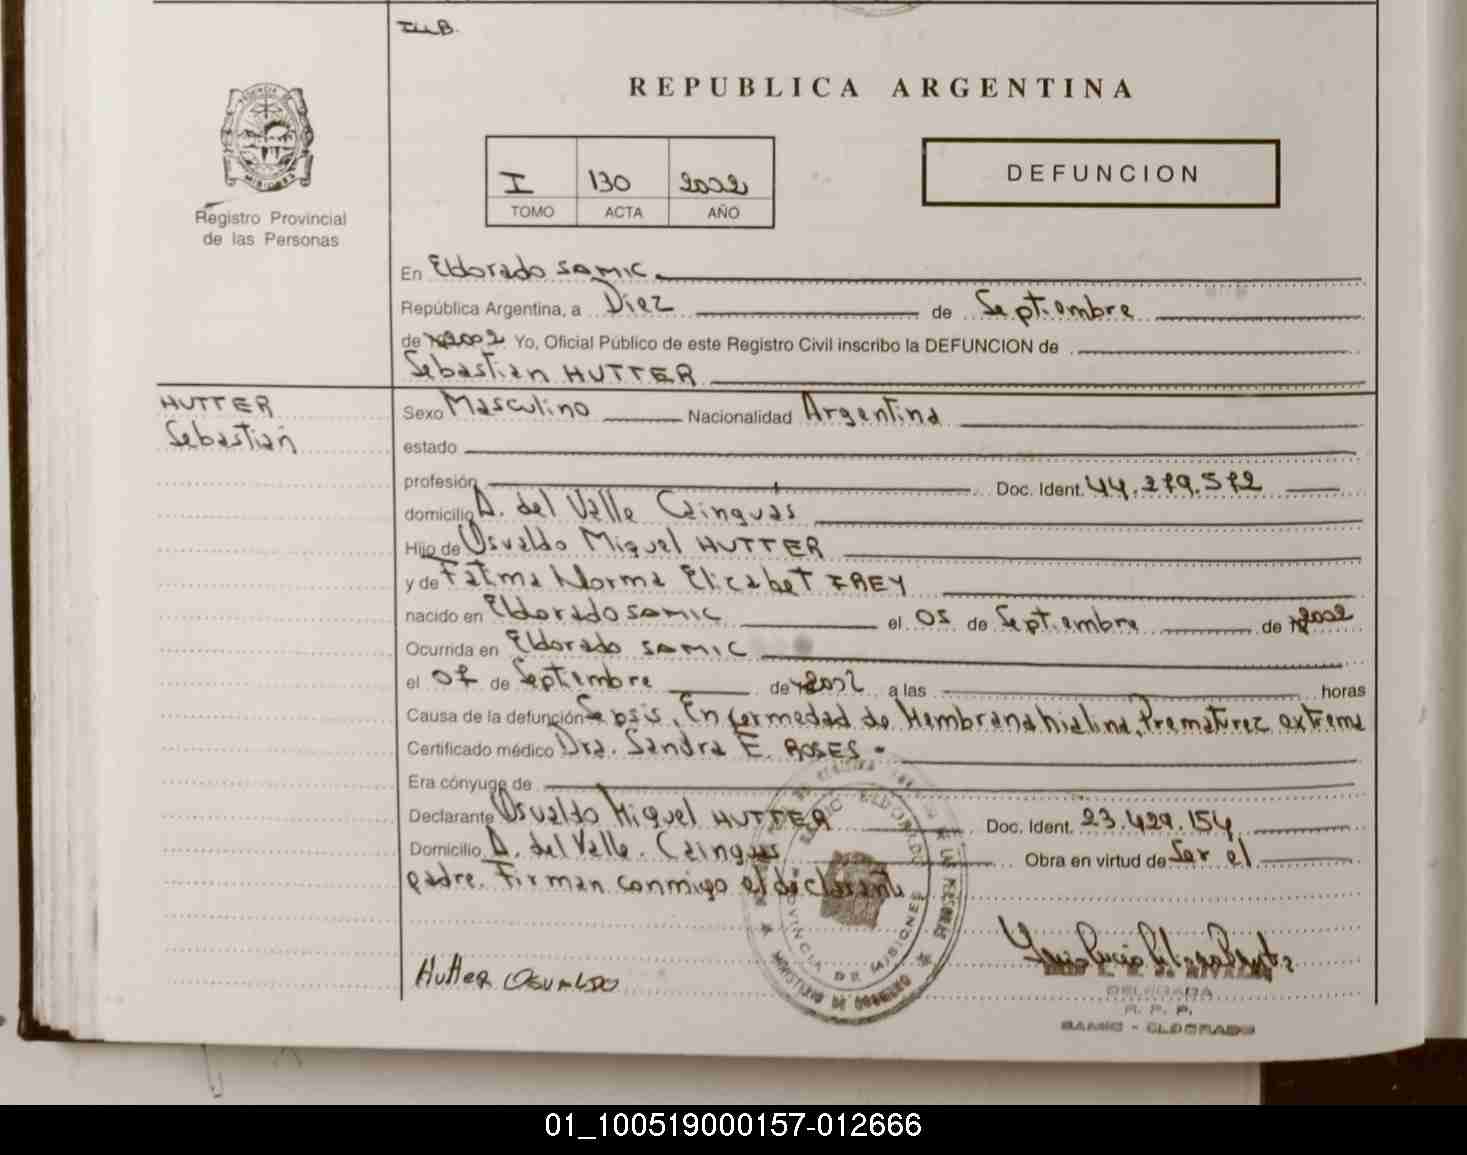 REPUBLICA ARGENTINA
I 130 2002
TOMO ACTA AÑO
DEFUNCION
Registro Provincial
de las Personas
En Eldorado SAMIC
República Argentina, a Diez de Septiembre
de 2002 Yo, Oficial Público de este Registro Civil inscribo la DEFUNCION de
Sebastian HUTTER
HUTTER
Sebastián
Sexo Masculino Nacionalidad Argentina
estado
profesión Doc. Ident. 44.279.572
domicilio A. del Valle Cainguas
Hijo de Osvaldo Miguel HUTTER
y de Fatma Norma Elizabet FREY
nacido en Eldorado SAMIC el 05 de Septiembre de 2002
Ocurrida en Eldorado SAMIC
el 07 de Septiembre de 2002 a las horas
Causa de la defunción Sepsis, Enfermedad de Membrana hialina, Prematurez extrema
Certificado médico Dra. Sandra E. ROSES
Era cónyuge de
Declarante Osvaldo Miguel HUTTER Doc. Ident. 23.429.154
Domicilio A. del Valle. Cainguas Obra en virtud de Ser el
padre. Firman conmigo el declarante
Hutter OSVALDO
PROVINCIA DE MISIONES
MINISTERIO DE GOBIERNO
DELEGADA
R. P. P.
SAMIC - ELDORADO
01_100519000157-012666